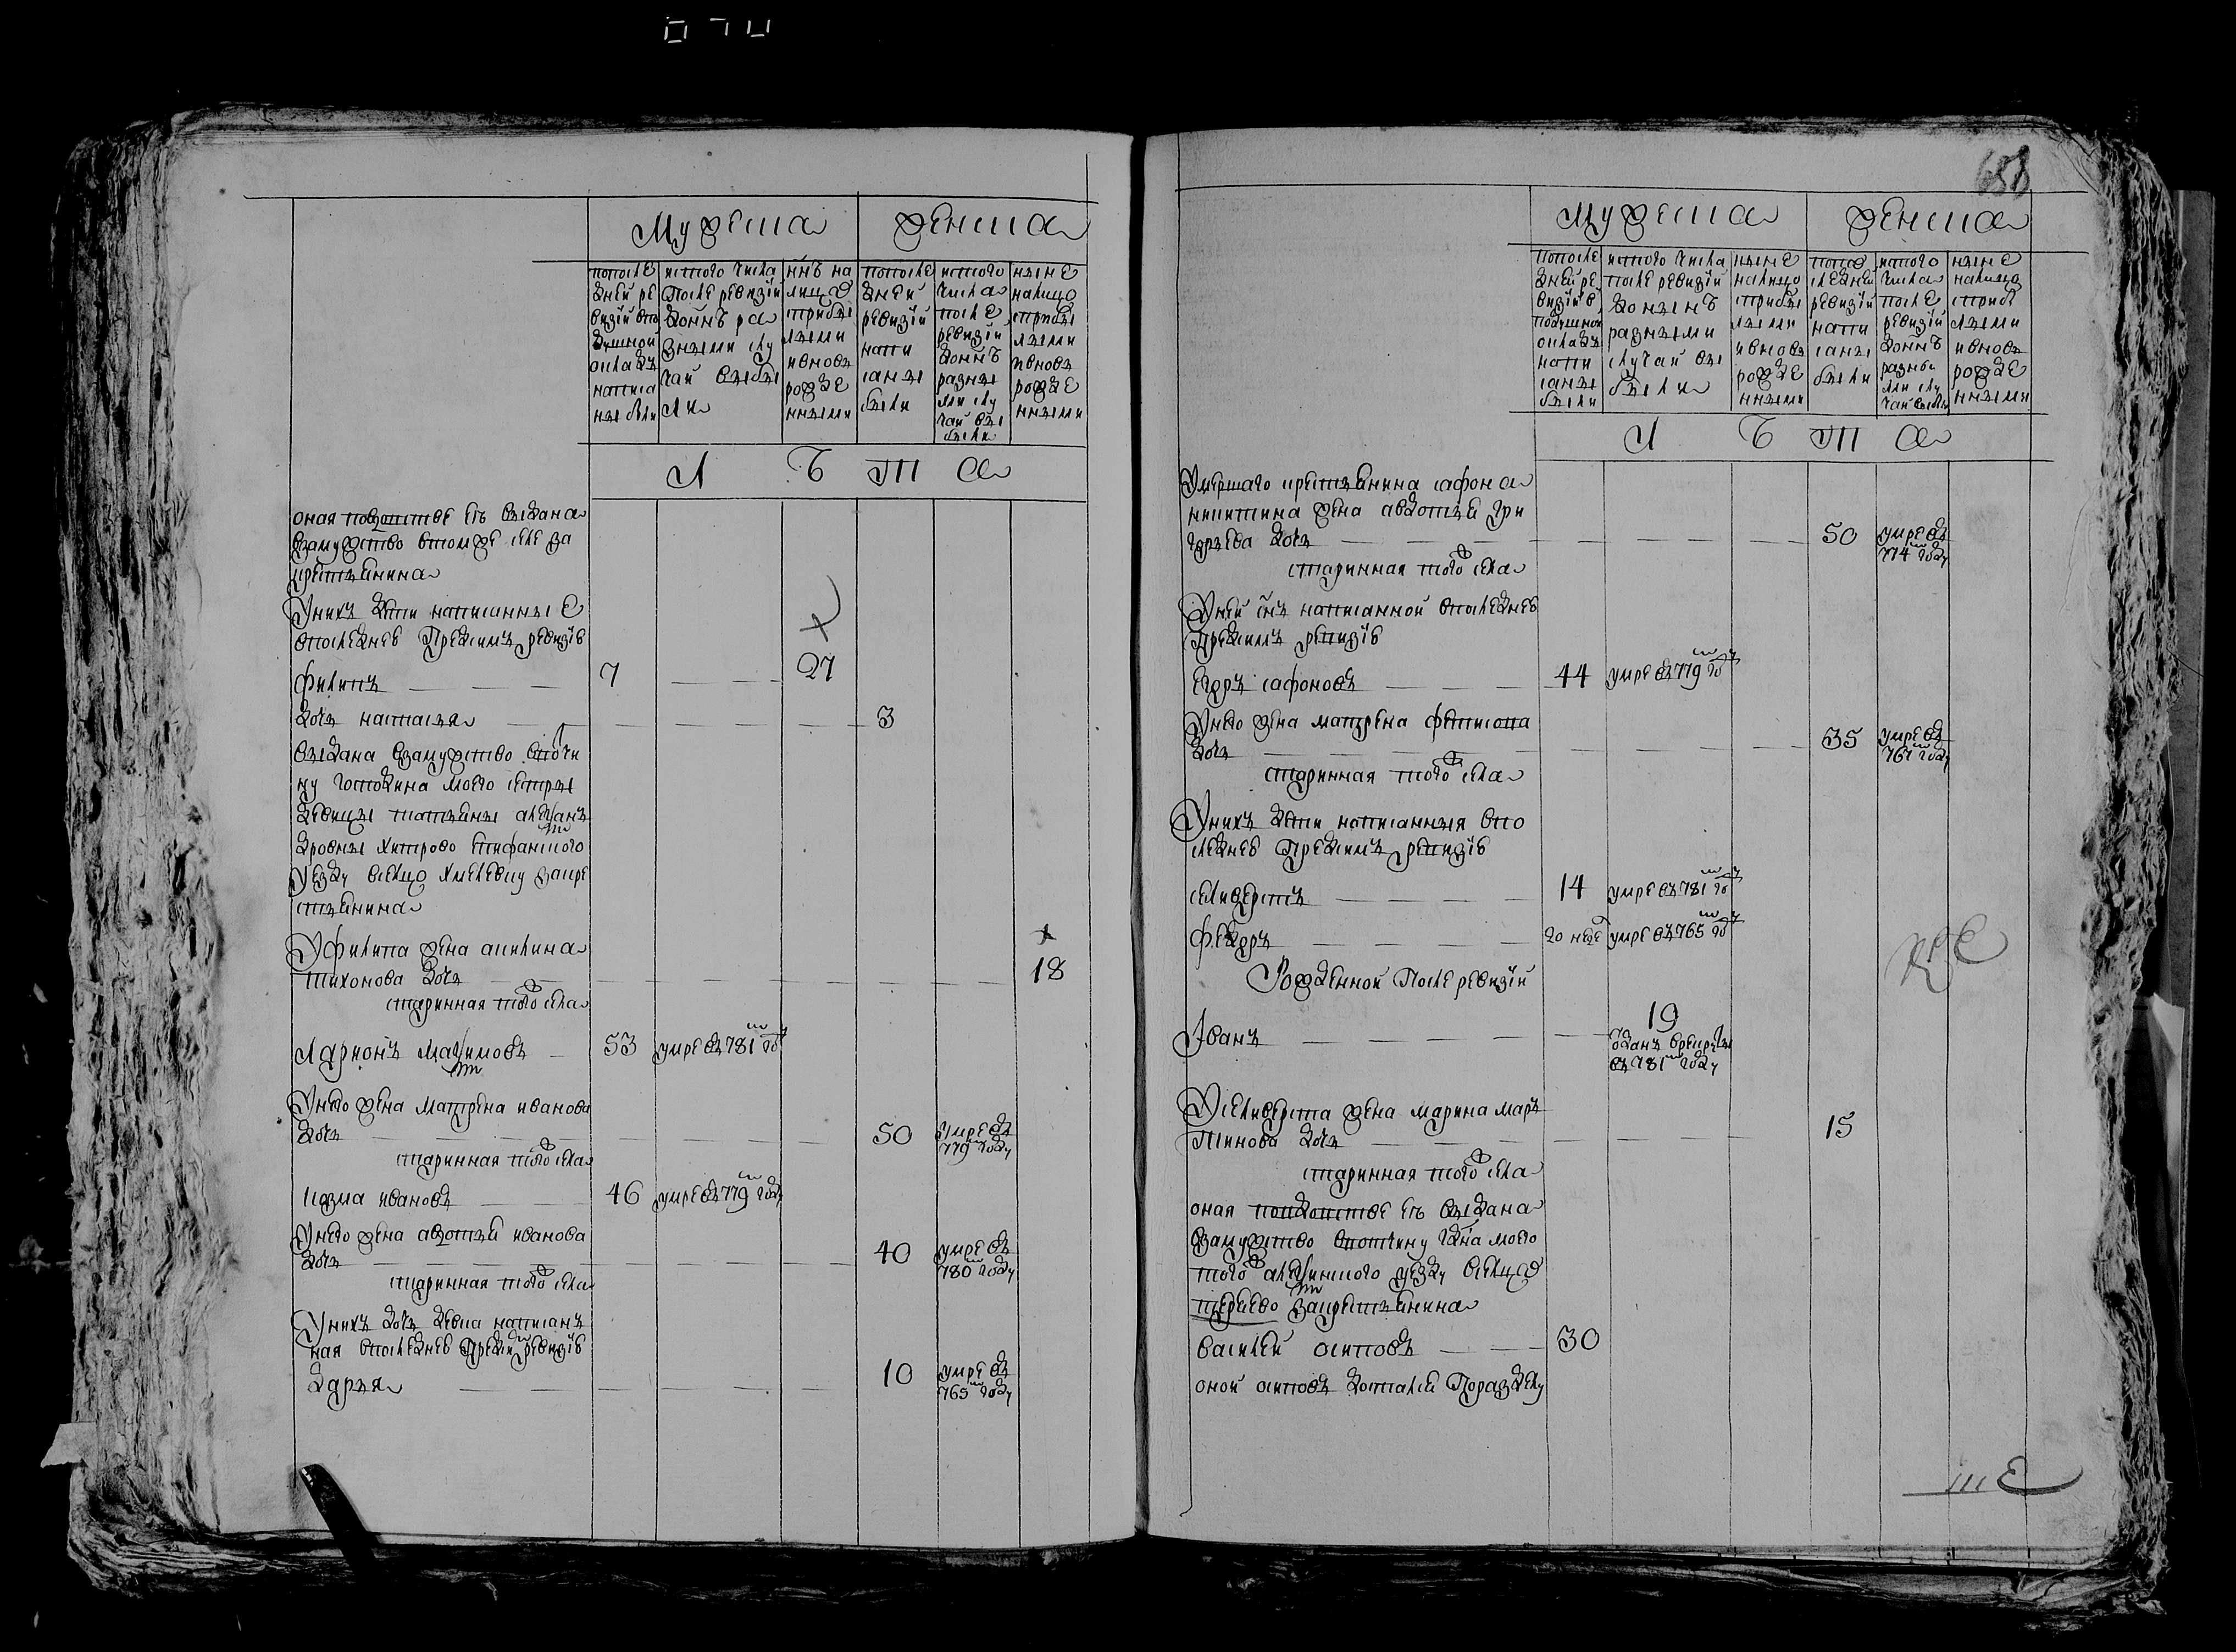 070
Мужеска
Женска
попосле
дней ре
визий впо
душной
окладъ
написа
ны были
исного числа
После ревизии
до ннѣ ра
зными слу
чаи выбы
ли
ннѣ на
лицо
сприбы
лыми
ивновь
рожде
нными
попосле
дней
ревизии
напи
саны
были
истого
числа
после
ревизии
до ннѣ
разны
ми слу
чаи вы
были
ныне
налицо
сприбы
лыми
ивновь
рожде
нными
Л Ѣ Т А
оная поводстве ей выдана
взамужство втомже селе за
крестьянина
У нихъ дети написанные
впоследней Предсимъ ревизiи
Филипъ 7 27
дочь настасья 3
выдана взамужство вотчи
ну господина моего сестры
девицы татьяны алеѯанъ
дровны хитрово епифанского
уезду всельцо хмелевку закре
стьянина
У Филипа жена акилина
Тихонова дочь 18
старинная того села
Ларионъ Маѯимовъ 53 умре въ 781 м году
У него жена Матрена иванова
дочь 50 умре въ
779 м году
старинная того села
козма ивановъ 46 умре въ 779 м году
У него жена авдотья иванова
дочь 40 умре въ
780 м году
старинная того села
У нихъ дочь девка написанъ
ная впоследней Предсимъ ревизiи
дарья 10 умре въ
765 м году
688
Мужеска
женска
попосле
дней ре
визии в
подушной
окладъ
напи
саны
были
истого числа
после ревизии
до нынѣ
разными
случаи вы
были
ныне
налицо
сприбы
лыми
ивновь
рожде
нными
попо
следней
ревизии
напи
саны
были
истого
числа
после
ревизии
до ннѣ
разны
ми слу
чаи выбыли
ныне
налицо
сприбы
лыми
ивновь
рожде
нными
Л Ѣ Т А
Умершаго крестьянина сафона
никитина жена авдотья гри
горьева дочь 50 умре въ
774 м году
старинная того села
У ней снъ написанной впоследней
Предсимъ ревизiи
Егоръ сафоновъ 44 умре въ 779 м году
У него жена матрена феписова
дочь 35 умре въ
767 м году
старинная того села
У нихъ дети написанныя впо
следней Предсимъ ревизiи
селиверстъ 14 умре въ 781 м году
Федоръ 20 нед умре въ 765 м году
Рожденной После ревизии
Иванъ 19
отданъ врекруты
въ 781 м году
У селиверста жена марина маръ
тинова дочь 15
старинная того села
оная повдовстве ей выдана
взамужство вотчину гдна моего
того алеѯинского уезду всельцо
закрестьянина
василей осиповъ 30
оной осиповъ достался Поразделу